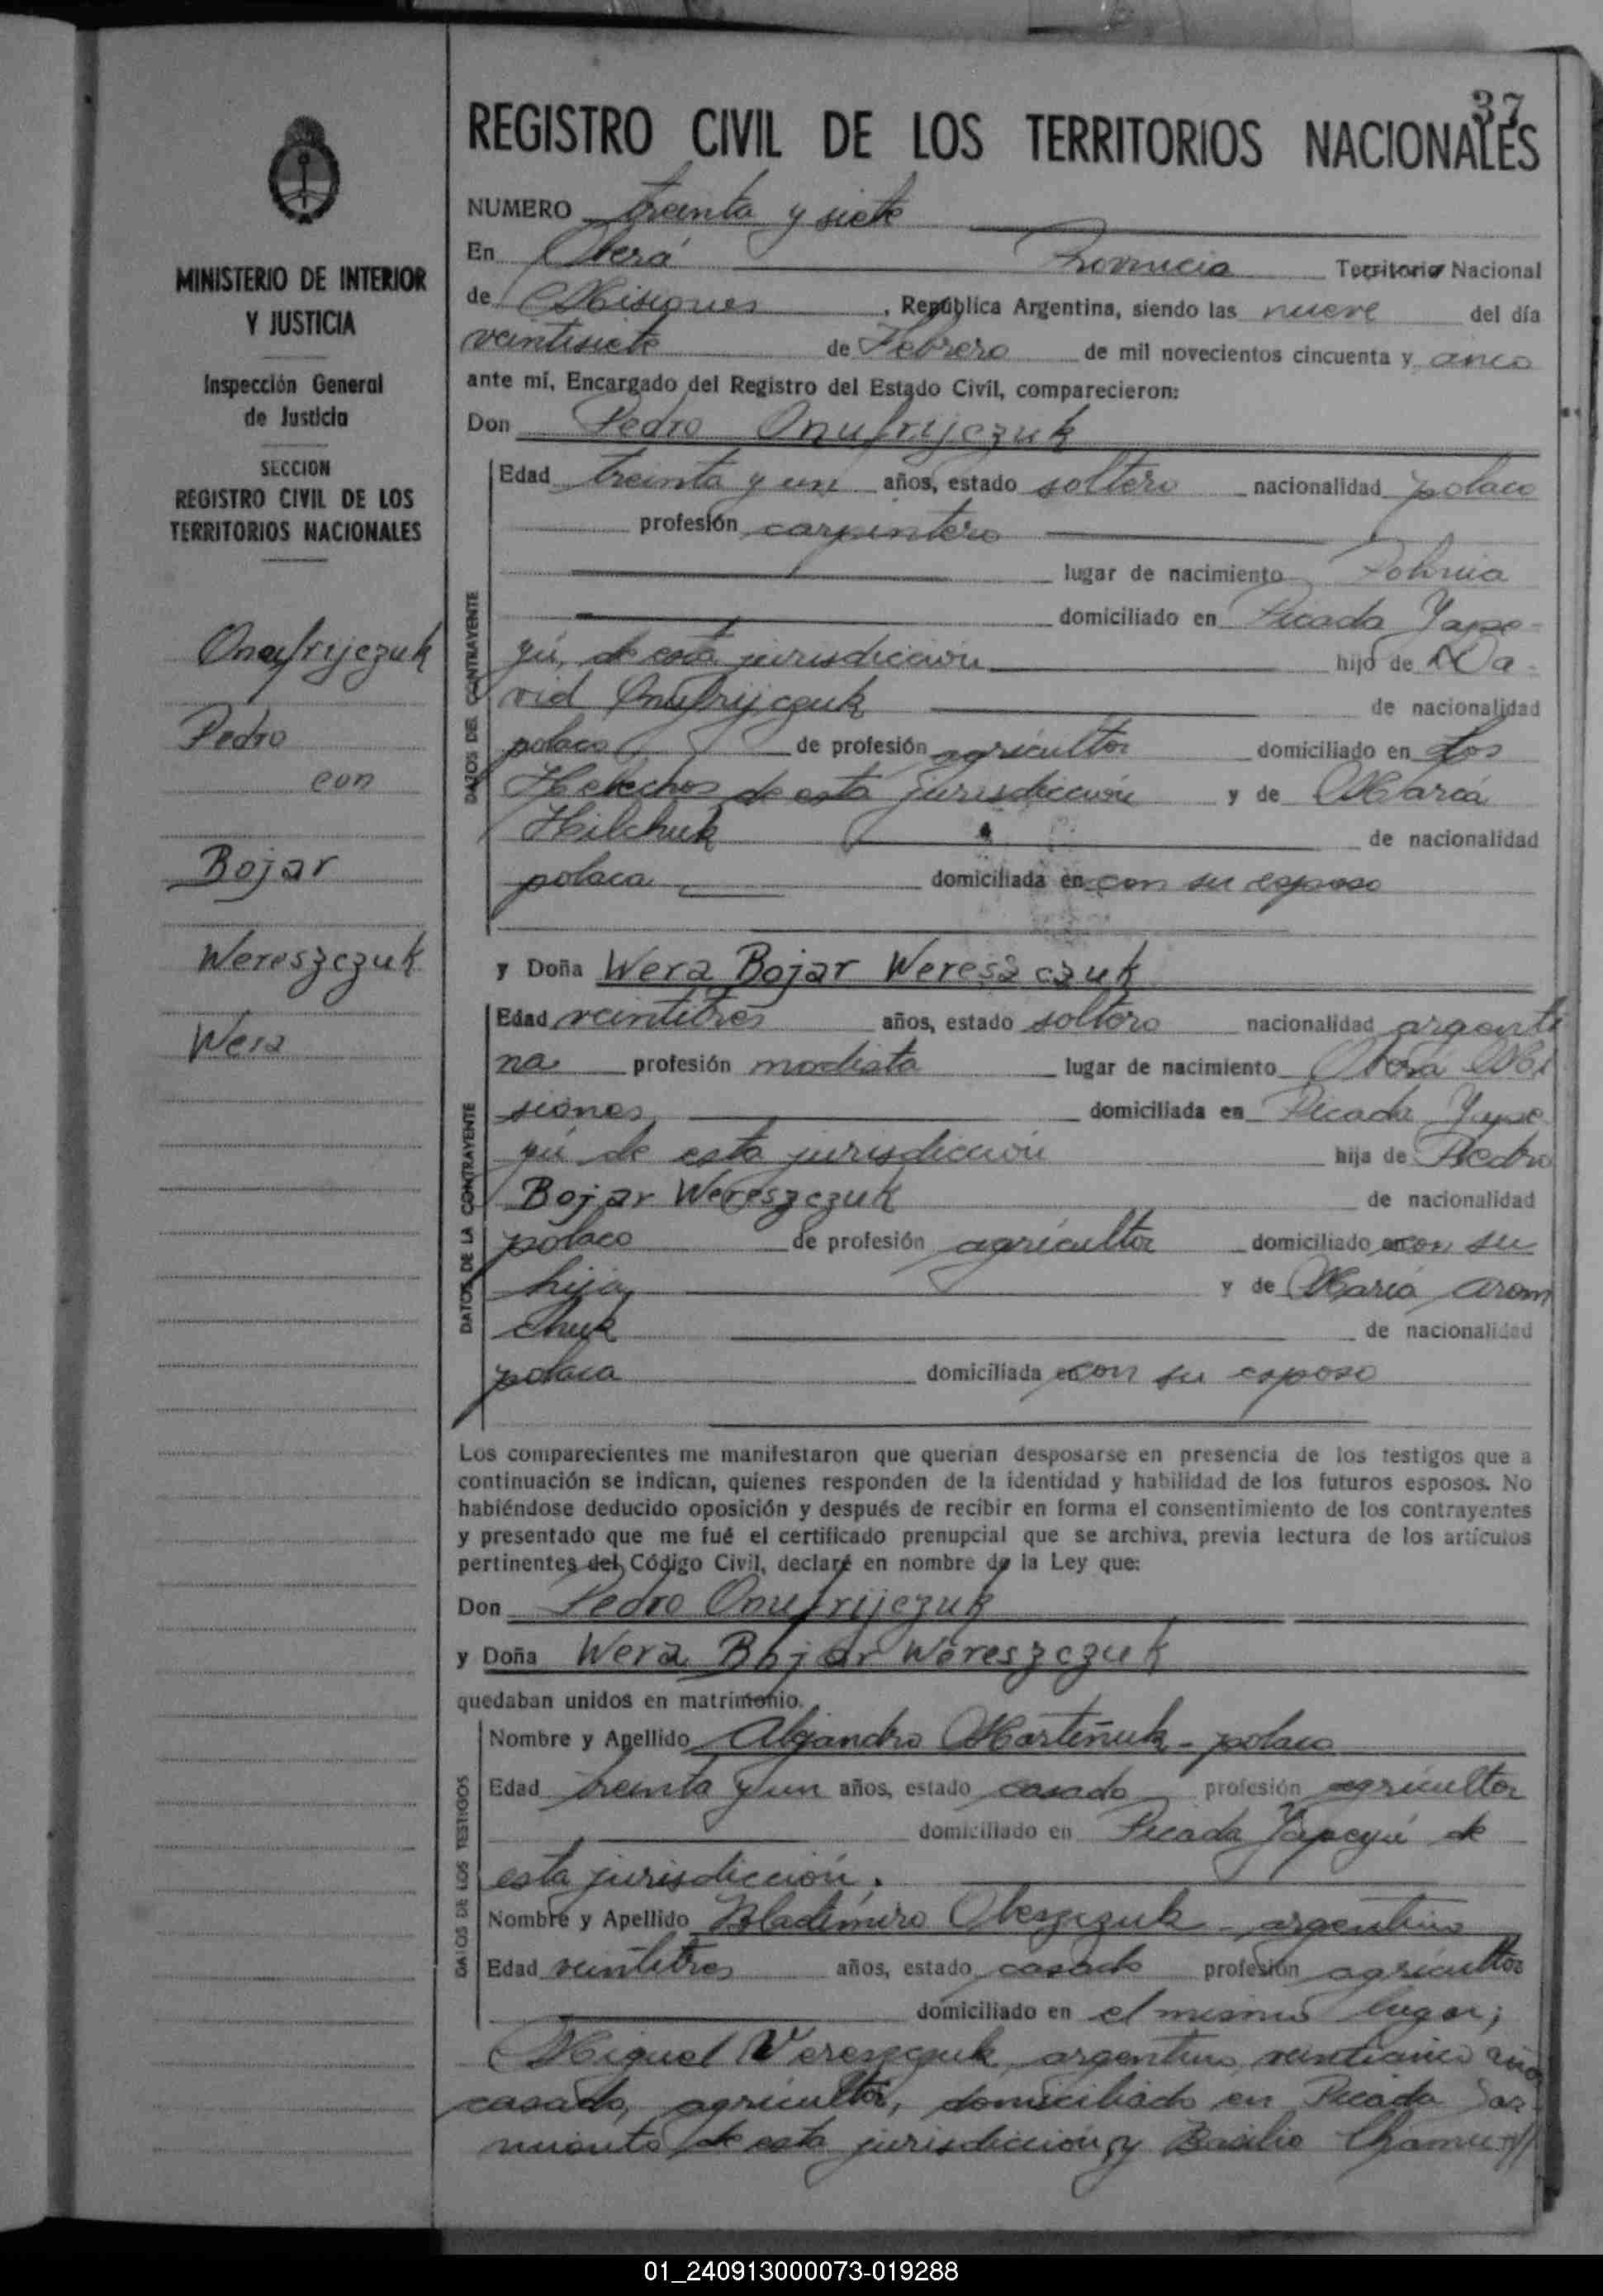 37
REGISTRO CIVIL DE LOS TERRITORIOS NACIONALES
MINISTERIO DE INTERIOR
Y JUSTICIA
Inspección General
de Justicia
SECCION
REGISTRO CIVIL DE LOS
TERRITORIOS NACIONALES
Onufrijczuk
Pedro
con
Bojar
Wereszczuk
Wera
NUMERO treinta y siete
En Oberá Provincia Territorio Nacional
de Misiones, República Argentina, siendo las nueve del día
veintisiete de Febrero de mil novecientos cincuenta y cinco
ante mí, Encargado del Registro del Estado Civil, comparecieron:
Don Pedro Onufrijczuk
DATOS DEL CONTRAYENTE
Edad treinta y un años, estado soltero nacionalidad polaco
profesión carpintero
lugar de nacimiento Polonia
domiciliado en Picada Yape-
yú, de esta jurisdicción hijo de Da-
vid Onufrijczuk de nacionalidad
polaco de profesión agricultor domiciliado en Los
Helechos de esta jurisdicción y de María
Hilchuk de nacionalidad
polaca domiciliada en con su esposo
y Doña Wera Bojar Wereszczuk
DATOS DE LA CONTRAYENTE
Edad veintitres años, estado soltero nacionalidad argenti
na profesión modista lugar de nacimiento Oberá Mi
siones domiciliada en Picada Yape
yú de esta jurisdicción hija de Pedro
Bojar Wereszczuk de nacionalidad
polaco de profesión agricultor domiciliado en con su
hija y de María Arom
chuk de nacionalidad
polaca domiciliada en con su esposo
Los comparecientes me manifestaron que querían desposarse en presencia de los testigos que a
continuación se indican, quienes responden de la identidad y habilidad de los futuros esposos. No
habiéndose deducido oposición y después de recibir en forma el consentimiento de los contrayentes
y presentado que me fué el certificado prenupcial que se archiva, previa lectura de los artículos
pertinentes del Código Civil, declaré en nombre de la Ley que:
Don Pedro Onufrijczuk
y Doña Wera Bojar Wereszczuk
quedaban unidos en matrimonio.
DATOS DE LOS TESTIGOS
Nombre y Apellido Alejandro Marteñuk - polaco
Edad treinta y un años, estado casado profesión agricultor
domiciliado en Picada Yapeyú de
esta jurisdicción;
Nombre y Apellido Bladimiro Oleszczuk - argentino
Edad veintitres años, estado casado profesión agricultor
domiciliado en el mismo lugar;
Miguel Vereszczuk, argentino, veinticinco años
casado, agricultor, domiciliado en Picada Sar-
miento de esta jurisdicción y Basilio
01_240913000073-019288